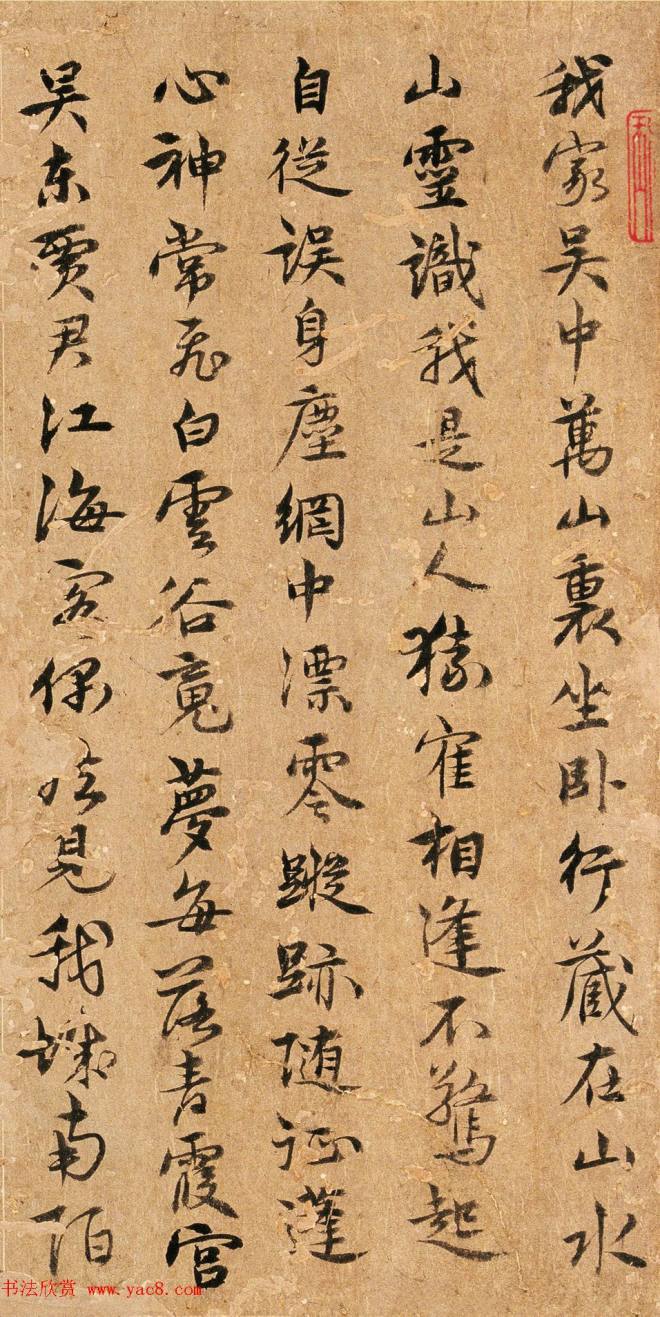 我家吴中萬山裏坐卧行藏在山水
山靈識我是山人猿寉相逢不驚起
自從误身塵網中漂零蹤跡随征蓬
心神常飛白雲谷䰟夢每落青霞宫
吴東贾君江海客偶然見我城南陌
书法欣赏 www.yac8.com